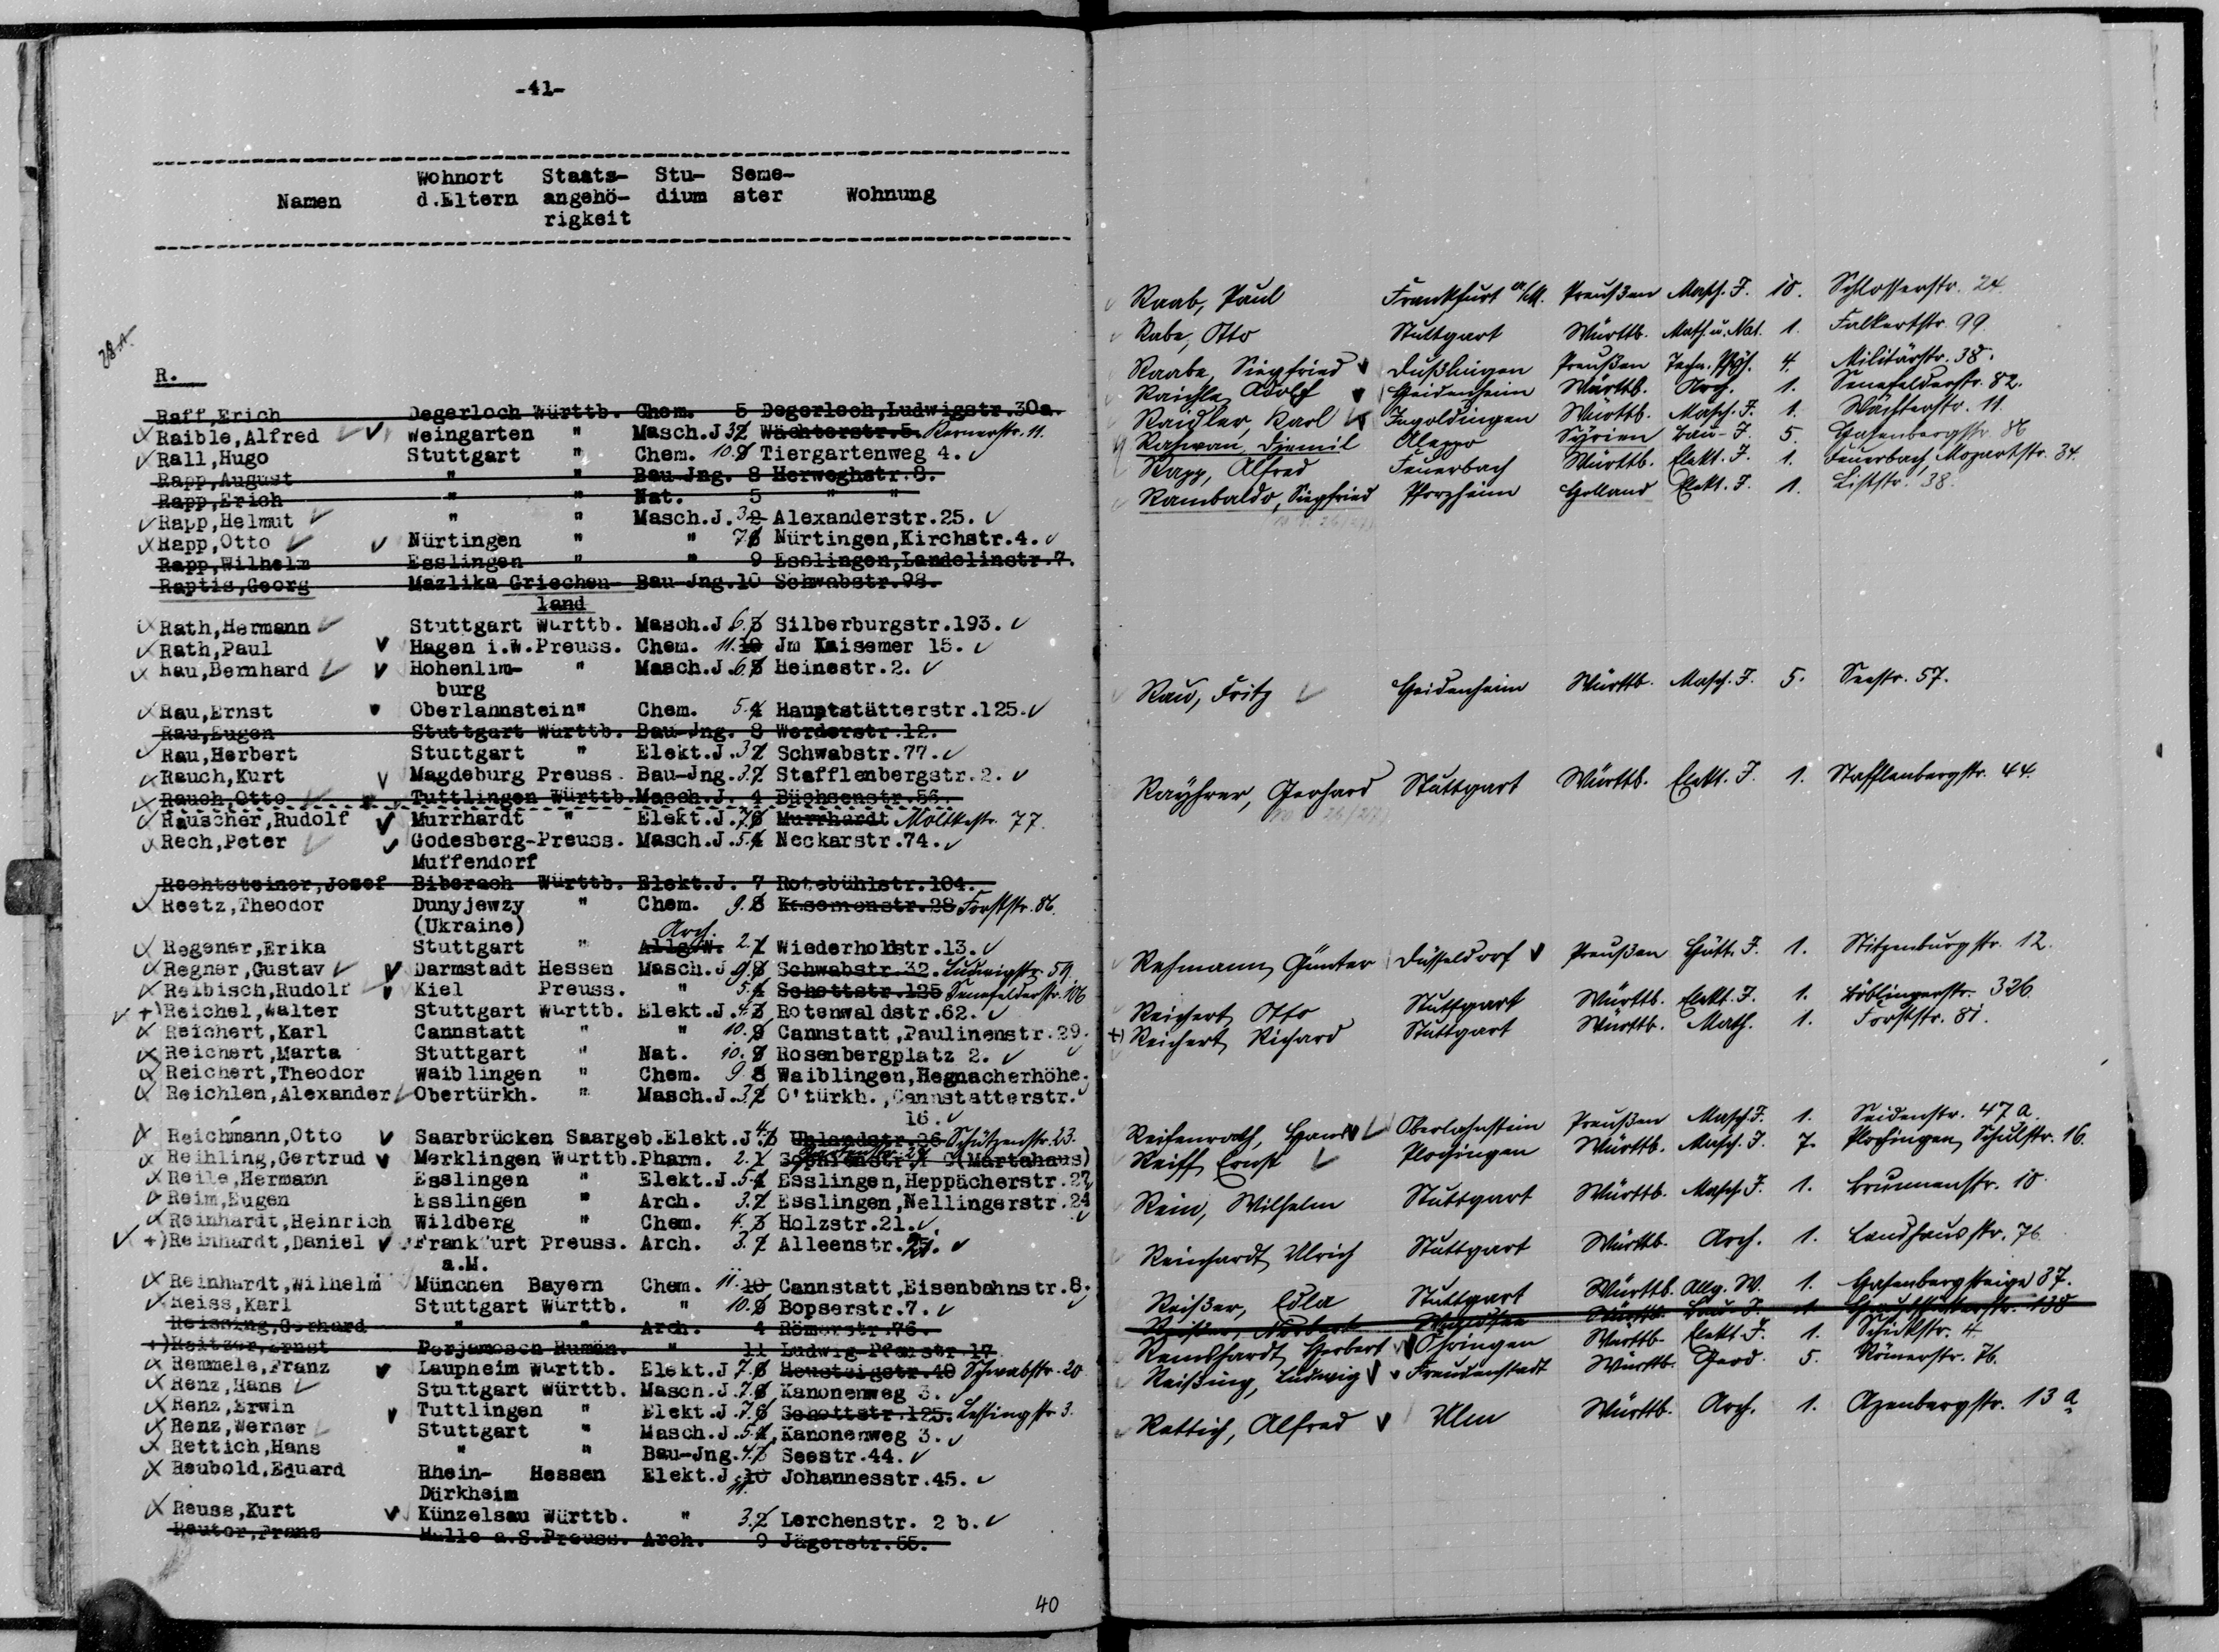 -41-
Namen Wohnort d.Eltern Staats-angehö-rigkeit Stu-dium Seme-ster Wohnung
R.
Raff,Erich Degerloch Württb. Chem. 5 Degerloch,Ludwigstr.30a.
Raible,Alfred Weingarten " Masch.J 3 2 Wächterstr.5. Kernerstr. 11.
Rall,Hugo Stuttgart " Chem. 10. 9 Tiergartenweg 4.
Rapp,August " " Bau-Jng. 8 Herweghstr.8.
Rapp,Erich " " Nat. 5 " "
Rapp,Helmut " " Masch.J. 3 2 Alexanderstr.25.
Rapp,Otto Nürtingen " " 7 6 Nürtingen,Kirchstr.4.
Rapp,Wilhelm Esslingen " " 9 Esslingen,Landolinstr.7.
Raptis,Georg Mazlika Griechen- Bau-Jng.10 Schwabstr.98.
land
Rath,Hermann Stuttgart Württb. Masch.J 6. 5 Silberburgstr.193.
Rath,Paul Hagen i.W.Preuss. Chem. 11. 10 Jm Kaisemer 15.
Rau,Bernhard Hohenlim- " Masch.J. 6 5 Heinestr.2.
burg
Rau,Ernst Oberlahnstein" Chem. 5. 4 Hauptstätterstr.125.
Rau,Eugen Stuttgart Württb. Bau-Jng. 8 Werderstr.12.
Rau,Herbert Stuttgart " Elekt.J. 3 2 Schwabstr.77.
Rauch,Kurt Magdeburg Preuss. Bau-Jng. 3. 2 Stafflenbergstr.2.
Rauch,Otto Tuttlingen Württb.Masch.J. 4 Büchsenstr.56.
Rauscher,Rudolf Murrhardt " Elekt.J. 7. 6 Murrhardt Moltkestr. 77.
Rech,Peter Godesberg-Preuss. Masch.J. 5. 4 Neckarstr.74.
Muffendorf
Rechtsteiner,Josef Biberach Württb. Elekt.J. 7 Rotebühlstr.104.
Reetz,Theodor Dunyjewzy " Chem. 9. 8 Kasernenstr.28 Forststr. 86.
(Ukraine) Arch.
Regener,Erika Stuttgart " Allg.W. 2. 1 Wiederholdstr.13.
Regner,Gustav Darmstadt Hessen Masch.J 9. 8 Schwabstr.32. Ludwigstr. 59.
Reibisch,Rudolf Kiel Preuss. " 5. 4 Schottstr.125 Senefelderstr. 106
+) Reichel,Walter Stuttgart Württb. Elekt.J. 4. 3 Rotenwaldstr.62.
Reichert,Karl Cannstatt " " 10. 9 Cannstatt,Paulinenstr.29.
Reichert,Marta Stuttgart " Nat. 10. 9 Rosenbergplatz 2.
Reichert,Theodor Waiblingen " Chem. 9. 8 Waiblingen,Hegnacherhöhe.
Reichlen,Alexander Obertürkh. " Masch.J. 3. 2 O'türkh.,Cannstatterstr.
16.
Reichmann,Otto Saarbrücken Saargeb.Elekt.J 4. 3 Uhlandstr.26 Schützenstr. 23.
Reihling,Gertrud Merklingen Württb.Pharm. 2. 1 Sophienstr. (Martahaus)
Reile,Hermann Esslingen " Elekt.J. 5. 4 Esslingen,Heppächerstr.27
Reim,Eugen Esslingen " Arch. 3. 2 Esslingen,Nellingerstr.24
Reinhardt,Heinrich Wildberg " Chem. 4. 3 Holzstr.21.
+) Reinhardt,Daniel Frankfurt Preuss. Arch. 3. 2 Alleenstr.
a.M.
Reinhardt,Wilhelm München Bayern Chem. 11. 10 Cannstatt,Eisenbahnstr.8.
Reiss,Karl Stuttgart Württb. " 10. 9 Bopserstr.7.
Reissing,Gerhard " " Arch. 4 Römerstr.76.
+) Reitzer,Ernst Perjamosch Rumän. " 11 Ludwig-Pfau str.17
Remmele,Franz Laupheim Württb. Elekt.J 7. 6 Heusteigstr.40 Schwabstr. 20
Renz,Hans Stuttgart Württb. Masch.J. 7. 6 Kanonenweg 3.
Renz,Erwin Tuttlingen " Elekt.J. 7. 6 Schottstr.125. Lessingstr 3.
Renz,Werner Stuttgart " Masch.J. 5. 4 Kanonenweg 3.
Rettich,Hans " " Bau-Jng. 4. 3 Seestr.44.
Reubold,Eduard Rhein- Hessen Elekt.J. 11. 10 Johannesstr.45.
Dürkheim
Reuss,Kurt Künzelsau Württb. " 3. 2 Lerchenstr. 2 b.
Reuter,Franz Halle a.S.Preuss. Arch. 9 Jägerstr.55.
40
Raab, Paul Frankfurt a/M. Preußen Masch. J. 10. Schlosserstr. 24.
Rabe, Otto Stuttgart Württb. Math. u. Nat. 1. Falkertstr. 99
Raabe, Siegfried Dußlingen Preußen Techn. Phys. 4. Militärstr. 38.
Raichle, Adolf Heidenheim Württb. Arch. 1. Senefelderstr. 82.
Raidler, Karl Ingoldingen Württb. Masch. J. 1. Wächterstr. 11.
Raswan, Djemil Aleppo Syrien Bau-J. 5. Hasenbergstr. 86
Rapp, Alfred Feuerbach Württb. Elekt. J. 1. Feuerbach, Mozartstr. 34.
Rambaldo, Siegfried Pforzheim Holland Elekt. J. 1. Liststr. 38.
Rau, Fritz Heidenheim Württb. Masch. J. 5. Seestr. 57.
Rayhrer, Gerhard Stuttgart Württb. Elekt. J. 1. Stafflenbergstr. 44.
Rehmann, Günter Düsseldorf Preußen Hütt. J. 1. Stitzenburgstr. 12.
Reichert, Otto Stuttgart Württb. Elekt. J. 1. Böblingerstr. 326
+) Reichert, Richard Stuttgart Württb. Math. 1. Forststr. 81.
Reifenrath, Hans Oberlahnstein Preußen Masch. J. 1. Seidenstr. 47 a.
Reiff, Ernst Plochingen Württb. Masch. J. 7. Plochingen, Schulstr. 16.
Rein, Wilhelm Stuttgart Württb. Masch. J. 1. Brunnenstr. 10.
Reinhardt, Ulrich Stuttgart Württb. Arch. 1. Landhausstr. 76
Reißer, Edla Stuttgart Württb. Allg. W. 1. Hasenbergsteige 37.
Württb. Bau-J. 1.
Remshardt, Herbert Öhringen Württb. Elekt. J. 1. Schickstr. 4
Reißing, Ludwig Freudenstadt Württb. Geod. 5. Römerstr. 76.
Rettich, Alfred Ulm Württb. Arch. 1. Azenbergstr. 13 a